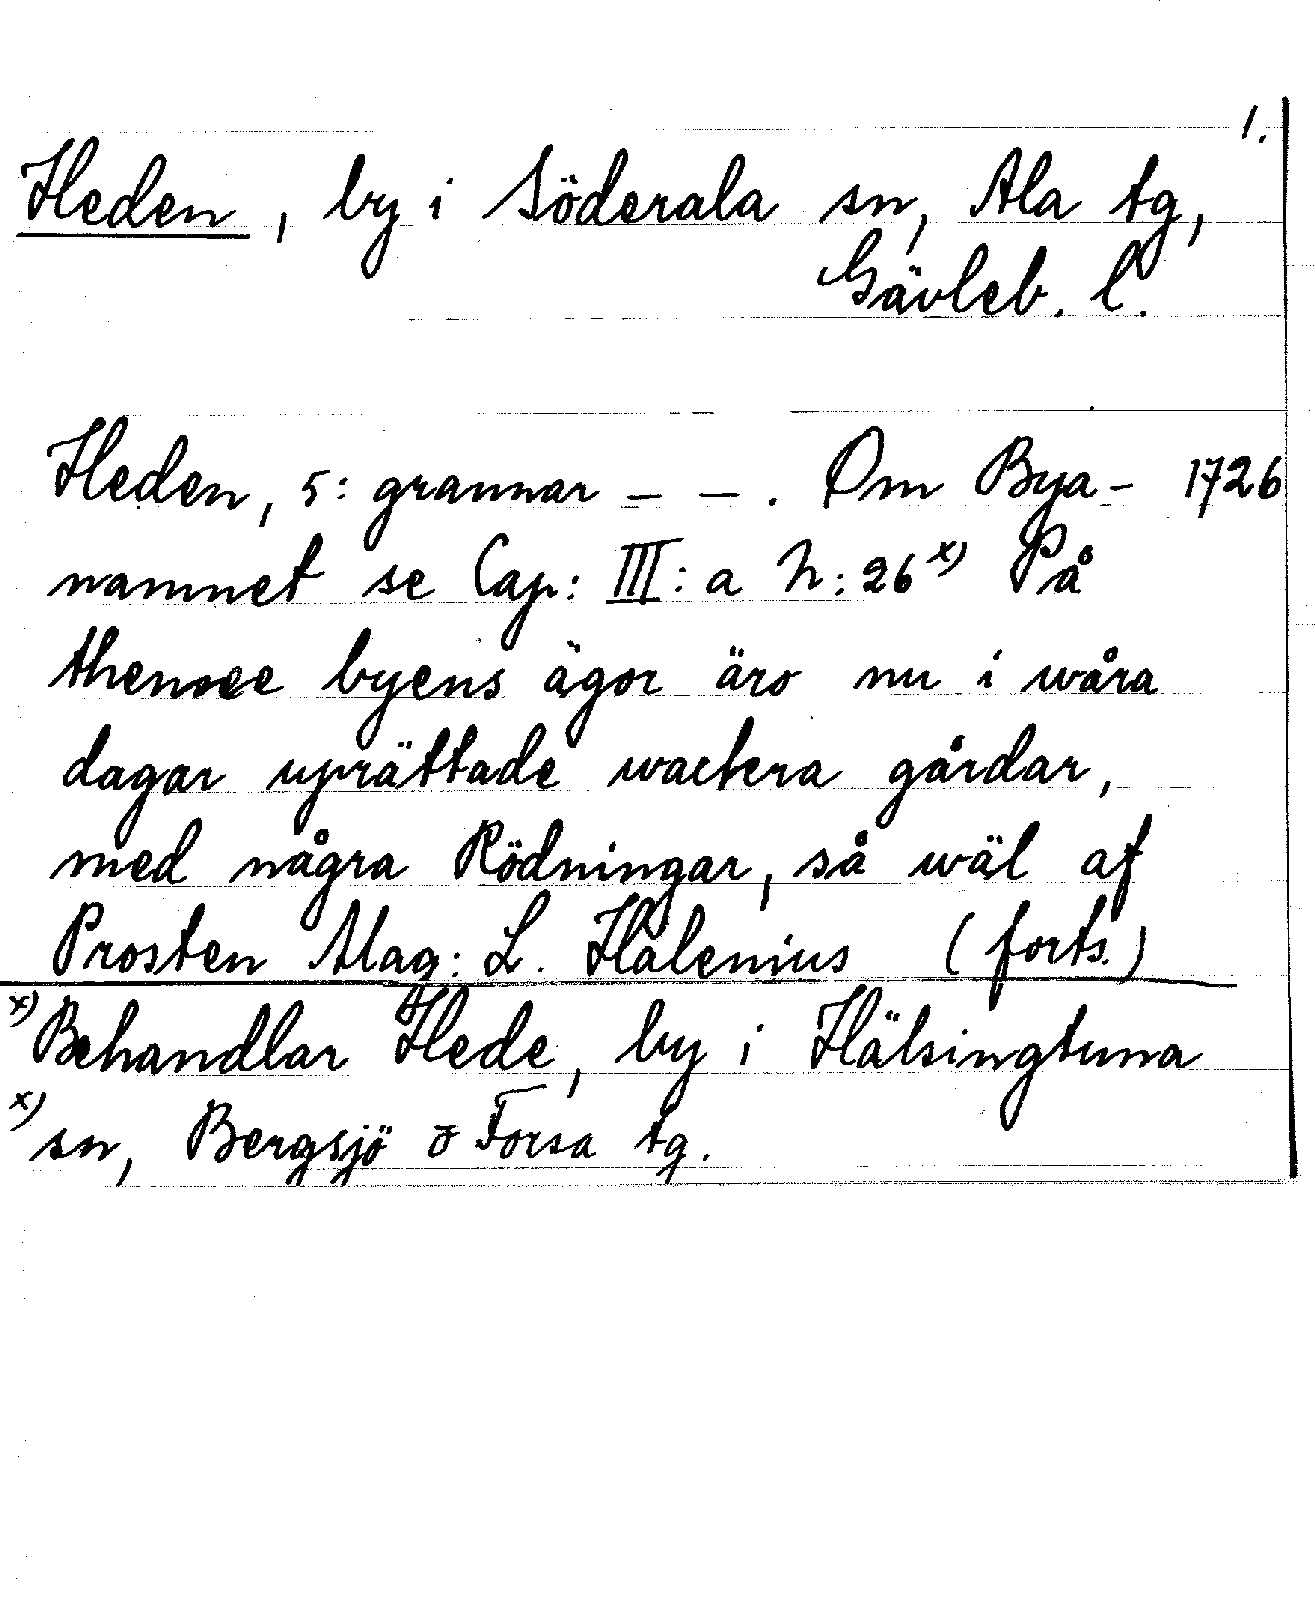 1.
Heden, by i Söderala sn, Ala tg,
Gävleb. l.
Heden, 5: grannar – – . Om Bya- 1726
namnet se Cap: III: a N: 26 x) På
thensee byens ägor äro nu i wåra
dagar uprättade wackra gårdar,
med några Rödningar, så wäl af
Prosten Mag: L. Halenius (forts.)
x) Behandlar Hede, by i Hälsingtuna
x) sn, Bergsjö o Forsa tg.